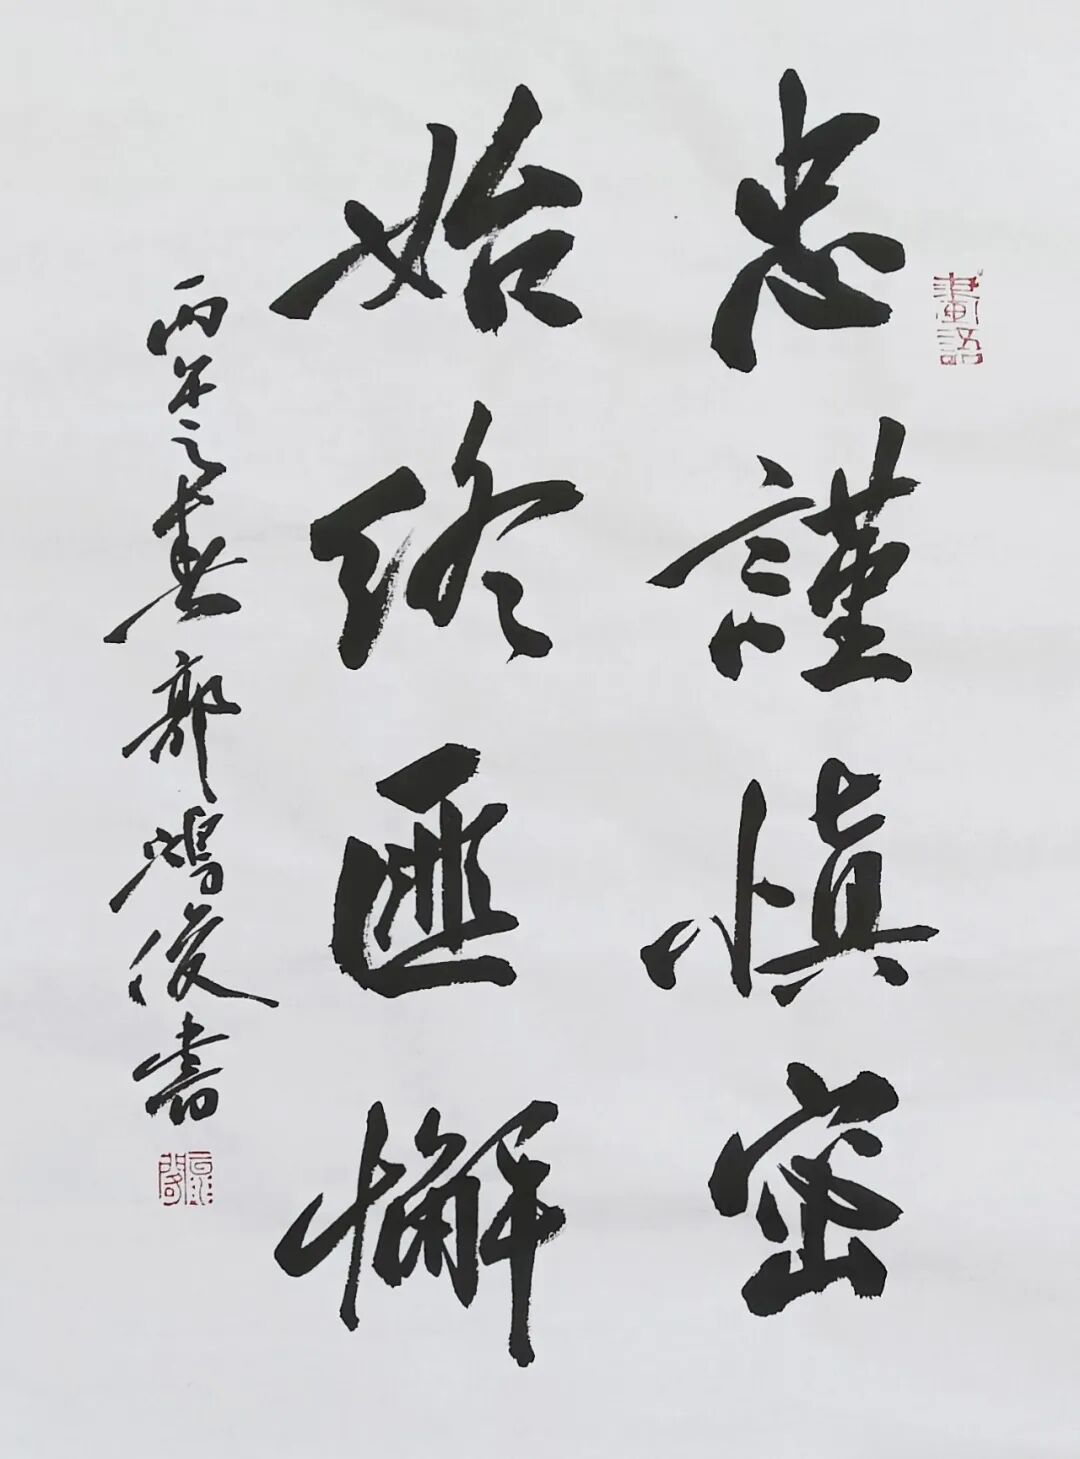 忠謹慎密
始終匪懈
丙午之春郭鴻俊書
畫語